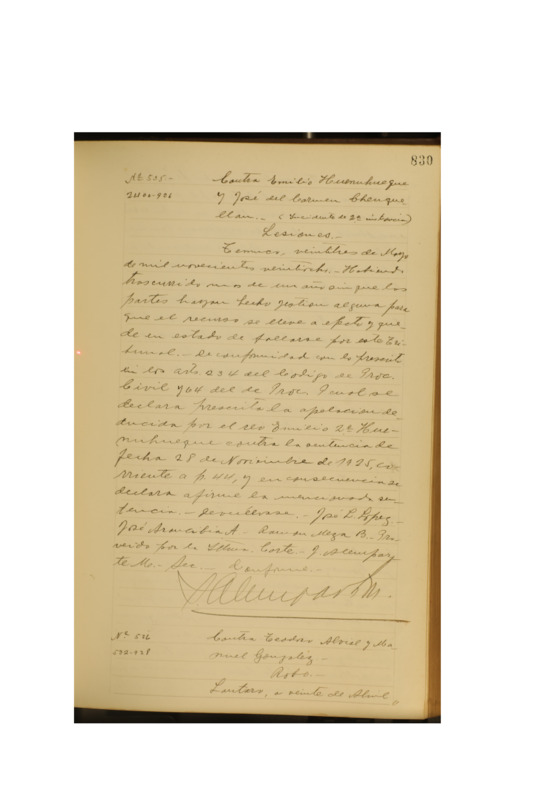 830
Nº 535 - Contra Emilio Huenuhueque
y José del Carmen Chenque
llan. - (Incidente de 2ª instancia)
Lesiones. -
Temuco, veintitres de Mayo
de mil novecientos veintiocho. - Habiendo
trascurrido mas de un año sin que las
partes hayan hecho jestion alguna para
que el recurso se lleve a efecto y que-
de en estado de fallarse por este Tri-
bunal. - De conformidad con lo prescrit
en los arts 234 del Codigo de Proc.
Civil y 44 del de Proc. Penal se
declara prescrita la apelacion de-
ducida por el reo Emilio 2º Hue-
nuhueque contra la sentencia de
fecha 28 de Noviembre de 1925, co-
rriente a f. 44, y en consecuencia se
declara a firme la mencionada sen-
tencia. - Devuélvase. - José L. López. -
José Arancibia A. - Ramon Meza B. - Pro-
veido por la Iltma. Corte. - J. Alempar
te M. - Sec. - Conforme. -
Nº 536 Contra Teodoro Abval y Ma-
nuel González -
Robo -
Lautaro, a veinte de Abril